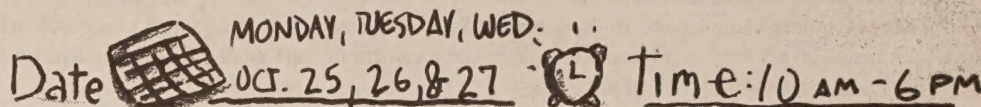 MONDAY, TUESDAY, WED.
Date OCT. 25, 26, & 27 Time: 10 AM - 6 PM